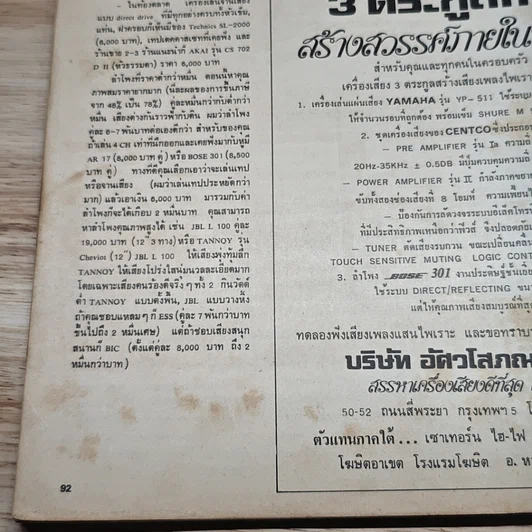 – ในท้องตลาด เครื่องเล่นจานเสียง
แบบ direct drive ที่มีทุกอย่างครบทั้งหัวเข็ม,
แท่น, ฝาครอบก็เห็นมีของ Technics SL-2000
(8,000 บาท), เทปเดคคาสเซทที่เคยฟัง และ
ร้านขาย 2-3 ร้านแนะนำก็ AKAI รุ่น CS 702
D II (หัวธรรมดา) ราคา 6,000 บาท
ลำโพงที่ราคาต่ำกว่าหมื่น ตอนนี้หาคุณ
ภาพสมราคายากมาก (นี่ละผลของการขึ้นภาษี
จาก 48% เป็น 78%) คู่ละหมื่นกว่ากับต่ำกว่า
หมื่น เสียงต่างกันราวฟ้ากับดิน ผมว่าลำโพง
คู่ละ 6-7 พันบาทต่อเองดีกว่า สำหรับของคุณ
ถ้าเล่น 4 CH เท่าที่นึกออกและเคยฟังมาก็มี
AR 17 (8,000 บาท คู่) หรือ BOSE 301 (8,500
บาท คู่) ทางที่ดีคุณเลือกเอาว่าจะเล่นเทป
หรือจานเสียง (ผมว่าเล่นเทปประหยัดกว่า
มาก) แล้วเอาเงิน 6,000 บาท มารวมกับค่า
ลำโพงก็จะได้เกือบ 2 หมื่นบาท คุณสามารถ
หาลำโพงคุณภาพสูงได้ เช่น JBL L 100 คู่ละ
19,000 บาท (12" 3 ทาง) หรือ TANNOY รุ่น
Cheviot (12") JBL L 100 ให้เสียงพุ่งทุ้มลึก
TANNOY ให้เสียงโปร่งใสนิ่มนวลละเอียดมาก
โดยเฉพาะเสียงคนร้องดีจริงๆ ทั้ง 2 กินวัตต์
ต่ำ TANNOY แบบตั้งพื้น, JBL แบบวางหิ้ง
ถ้าคุณชอบแหลมๆ ก็ ESS (คู่ละ 7 พันกว่าบาท
ขึ้นไปถึง 2 หมื่นเศษ) แต่ถ้าชอบเสียงสนุก
สนานก็ BIC (ตั้งแต่คู่ละ 8,000 บาท ถึง 2
หมื่นกว่าบาท)
92
3 ตระกูล
สร้างสวรรค์ภายใน
สำหรับคุณและทุกคนในครอบครัว
เครื่องเสียง 3 ตระกูลสร้างเสียงเพลงไพเรา
1. เครื่องเล่นแผ่นเสียง YAMAHA รุ่น YP-511 ใช้ระบบ
ให้จำนวนรอบที่ถูกต้อง พร้อมเข็ม SHURE M
2. ชุดเครื่องเสียงของ CENTCO ซึ่งประกอ
– PRE AMPLIFIER รุ่น Ia ความถี่
20Hz-35KHz ± 0.5DB มีปุ่มควบคุมความถี่
– POWER AMPLIFIER รุ่น II กำลังภาคขยา
ขับทั้งสองช่องเสียงที่ 8 โอมห์ ความเพี้ยน
– ป้องกันการลัดวงจรระบบอิเล็คโทร
ที่มีประสิทธิภาพเหนือกว่าฟิวส์ จึงปลอดภั
– TUNER ตัดเสียงรบกวน ขณะเปลี่ยนคลื่
TOUCH SENSITIVE MUTING LOGIC CONT
3. ลำโพง BOSE 301 งานประดิษฐ์ชั้นเยี่
ใช้ระบบ DIRECT/REFLECTING ขนา
แต่ให้คุณภาพเสียงสมบูรณ์ที่สุ
ทดลองฟังเสียงเพลงแสนไพเราะ และขอทราบ
บริษัท อัศวโสภณ
สรรหาเครื่องเสียงดีที่สุด
50-52 ถนนสี่พระยา กรุงเทพฯ 5 โ
ตัวแทนภาคใต้... เซาเทอร์น ไฮ-ไฟ
โฆษิตอาเขต โรงแรมโฆษิต อ. ห